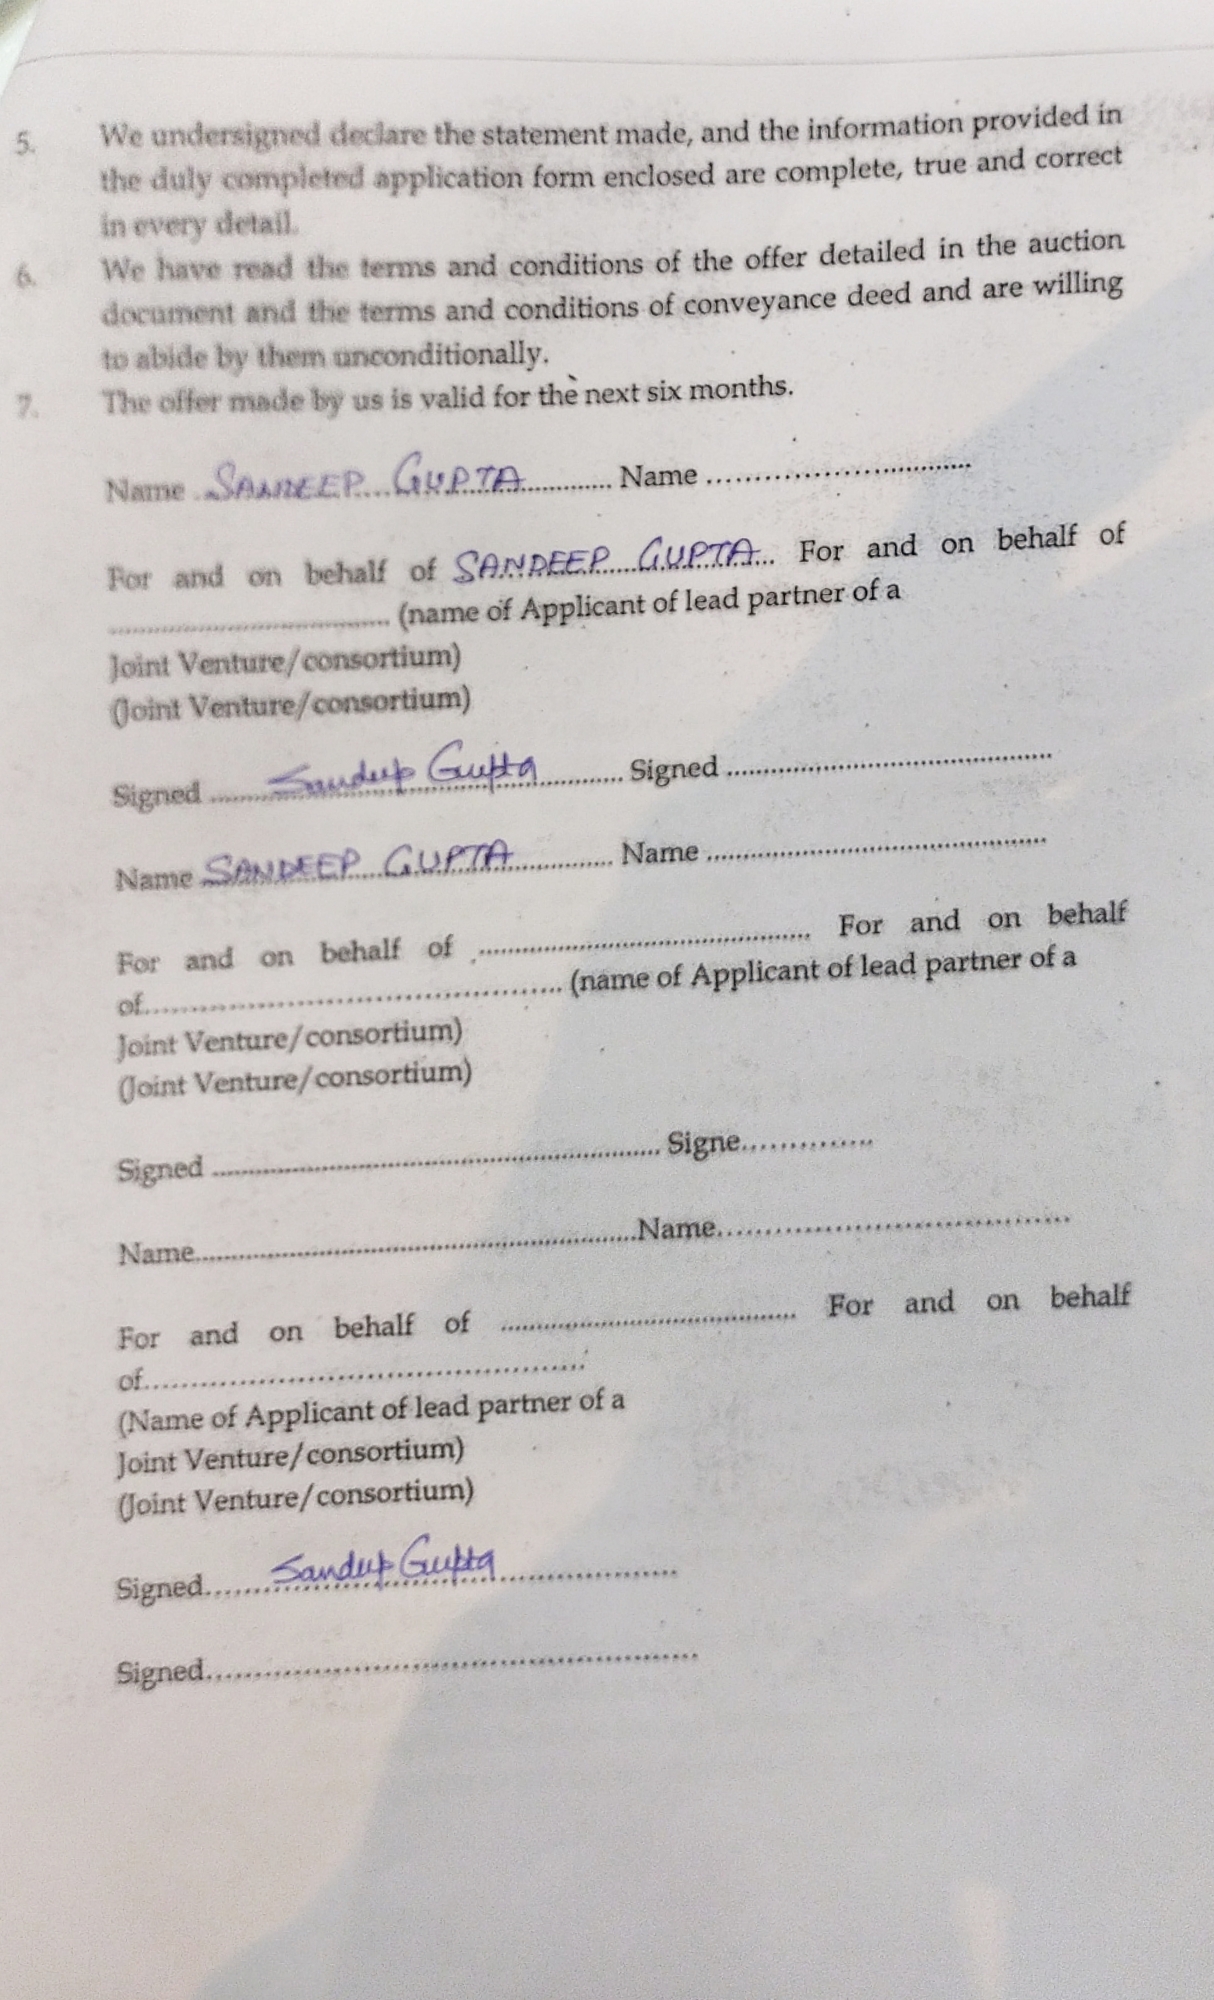 5. We undersigned declare the statement made, and the information provided in
the duly completed application form enclosed are complete, true and correct
in every detail.
6. We have read the terms and conditions of the offer detailed in the auction
document and the terms and conditions of conveyance deed and are willing
to abide by them unconditionally.
7. The offer made by us is valid for the next six months.
Name SANDEEP GUPTA Name ..............................
For and on behalf of SANDEEP GUPTA For and on behalf of
.............................. (name of Applicant of lead partner of a
Joint Venture/consortium)
(Joint Venture/consortium)
Signed Sandeep Gupta Signed ..............................
Name SANDEEP GUPTA Name ..............................
For and on behalf of .............................. For and on behalf
of.............................. (name of Applicant of lead partner of a
Joint Venture/consortium)
(Joint Venture/consortium)
Signed .............................. Signe..............
Name..............................Name..............................
For and on behalf of .............................. For and on behalf
of..............................
(Name of Applicant of lead partner of a
Joint Venture/consortium)
(Joint Venture/consortium)
Signed Sandeep Gupta
Signed..............................